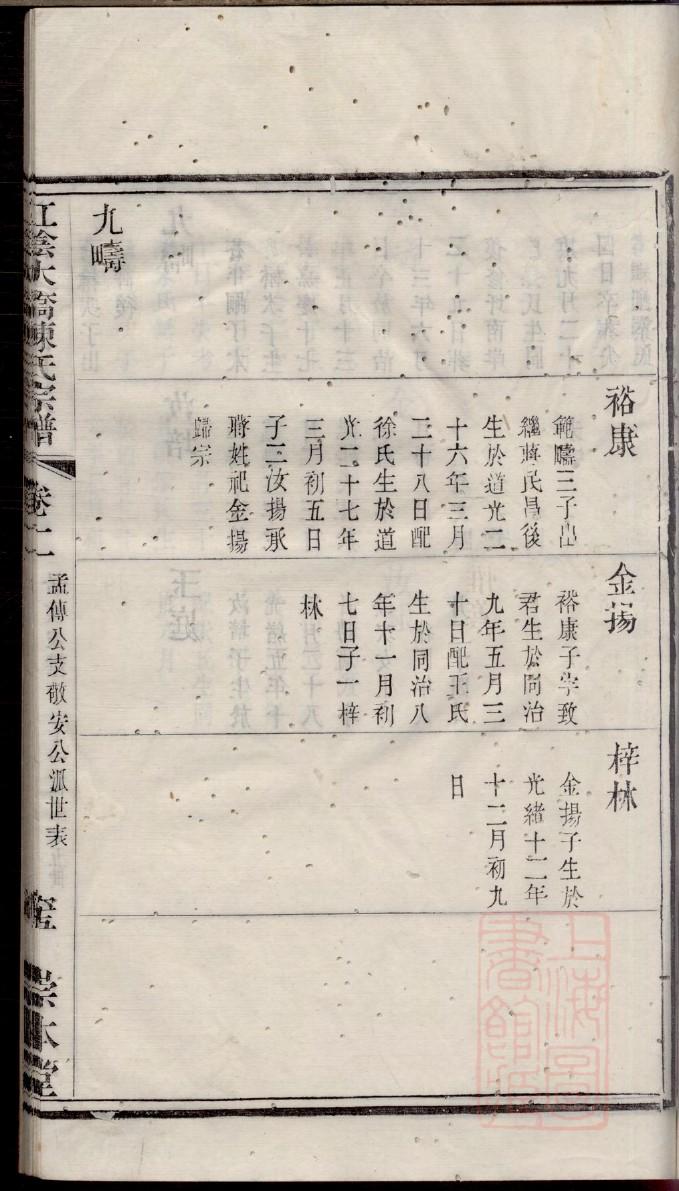 裕康
範疇三子出
繼蔣氏昌後
生於道光二
十六年三月
二十八日配
徐氏生於道
光二十七年
三月初五日
子二汝揚承
蔣姓祀金揚
歸宗
九疇
金揚
裕康子字致
君生於同治
九年五月三
十日配王氏
生於同治八
年十一月初
七日子一梓
林
梓林
金揚子生於
光緒十二年
十二月初九
日
江陰大橋陳氏宗譜
卷十二
孟傳公支敬安公派世表
崇本堂
上海圖書館藏